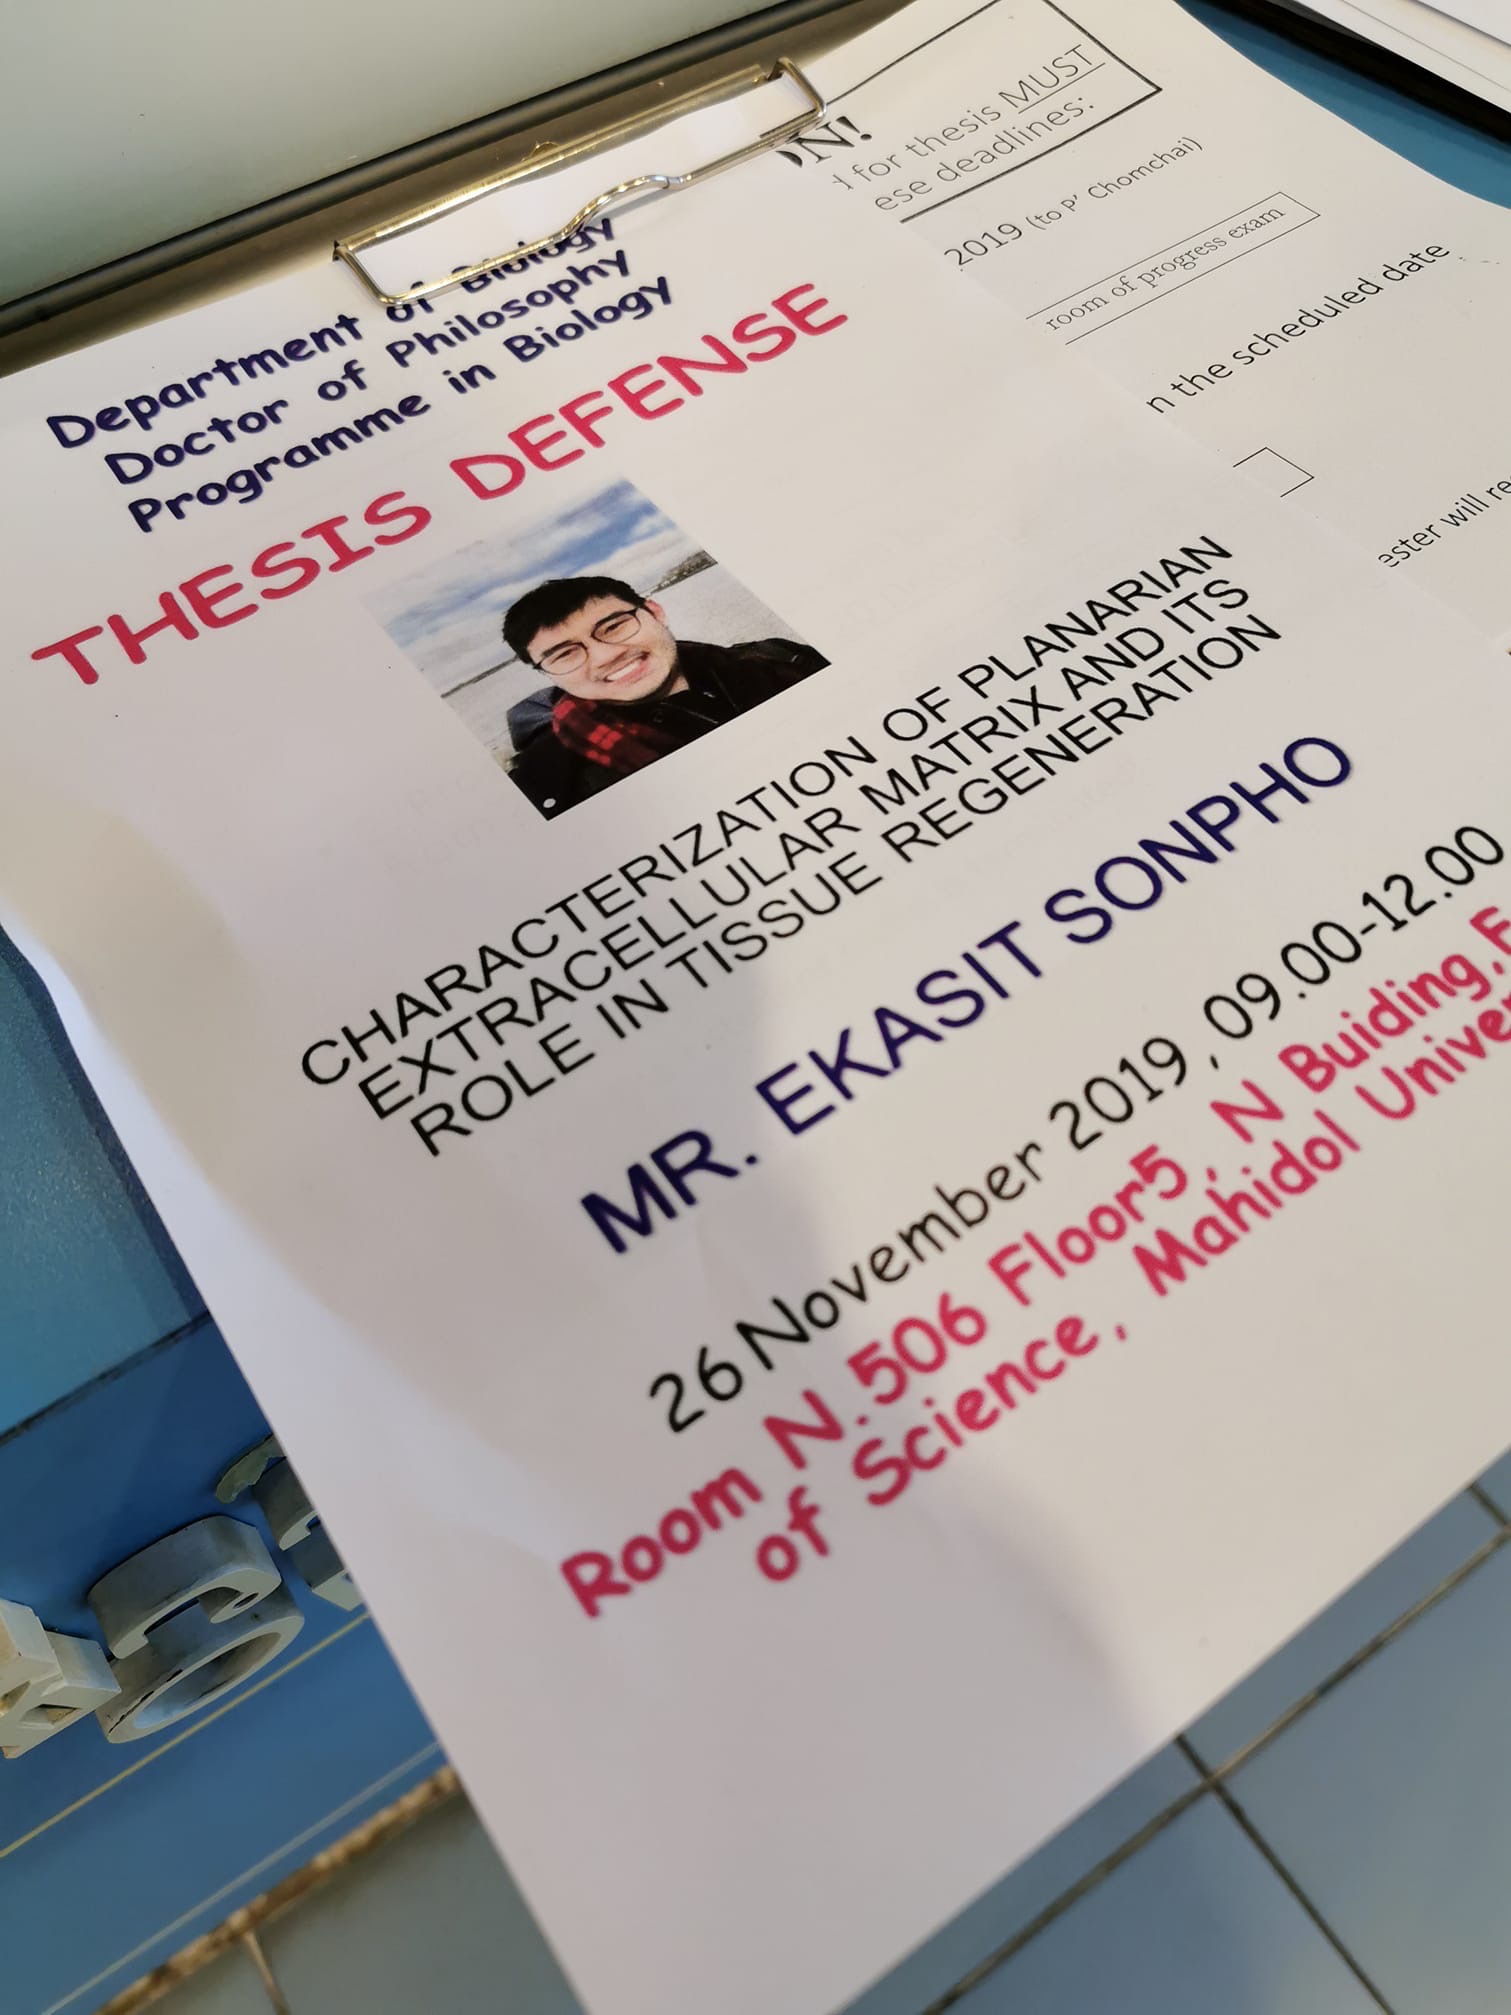 Department of Biology
Doctor of Philosophy
Programme in Biology
THESIS DEFENSE
CHARACTERIZATION OF PLANARIAN
EXTRACELLULAR MATRIX AND ITS
ROLE IN TISSUE REGENERATION
MR. EKASIT SONPHO
26 November 2019, 09.00-12.00
Room N.506 Floor5, N Buiding,F
of Science, Mahidol Univer
ON!
d for thesis MUST
ese deadlines:
2019 (to P' Chomchai)
room of progress exam
n the scheduled date
ester will re